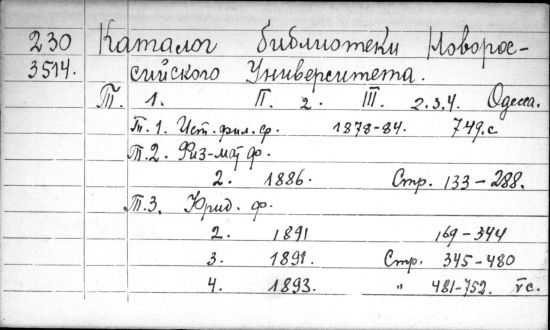 230 Каталог библиотеки Новорос-
3514. сийского Университета.
Т. 1. II. 2. III. 2.3.4. Одесса.
Т.1. Ист. фил. ф. 1878-84. 749.с
Т.2. Физ-мат ф.
2. 1886. Стр. 133-288.
Т.3. Юрид. ф.
2. 1891 169-344
3. 1891. Стр. 345-480
4. 1893. " 481-752. с.